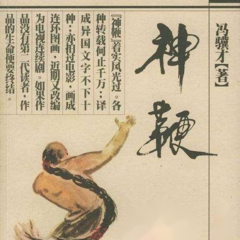 冯骥才【著】
神鞭
『神鞭』着实风光过。各
种转载何止千万；译
成异国文字不下十
种；亦拍过电影，画成
连环图画，近期又改编
为电视连续剧。如果作
品没有第二代读者，作
品的生命便要终结。